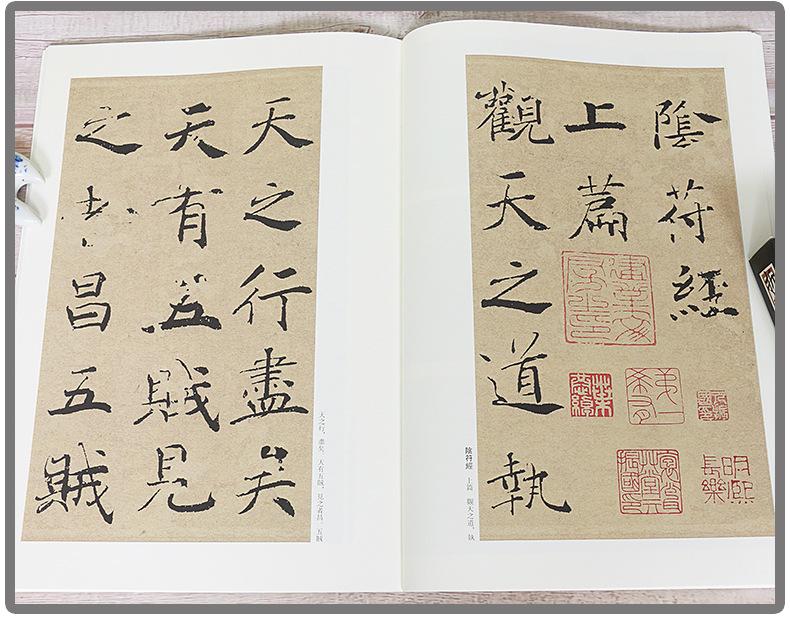 陰符經
上篇
觀天之道執
陰符經　上篇　觀天之道，執
天之行盡矣
天有五賊見
之者昌五賊
天之行，盡矣。天有五賊，見之者昌。五賊